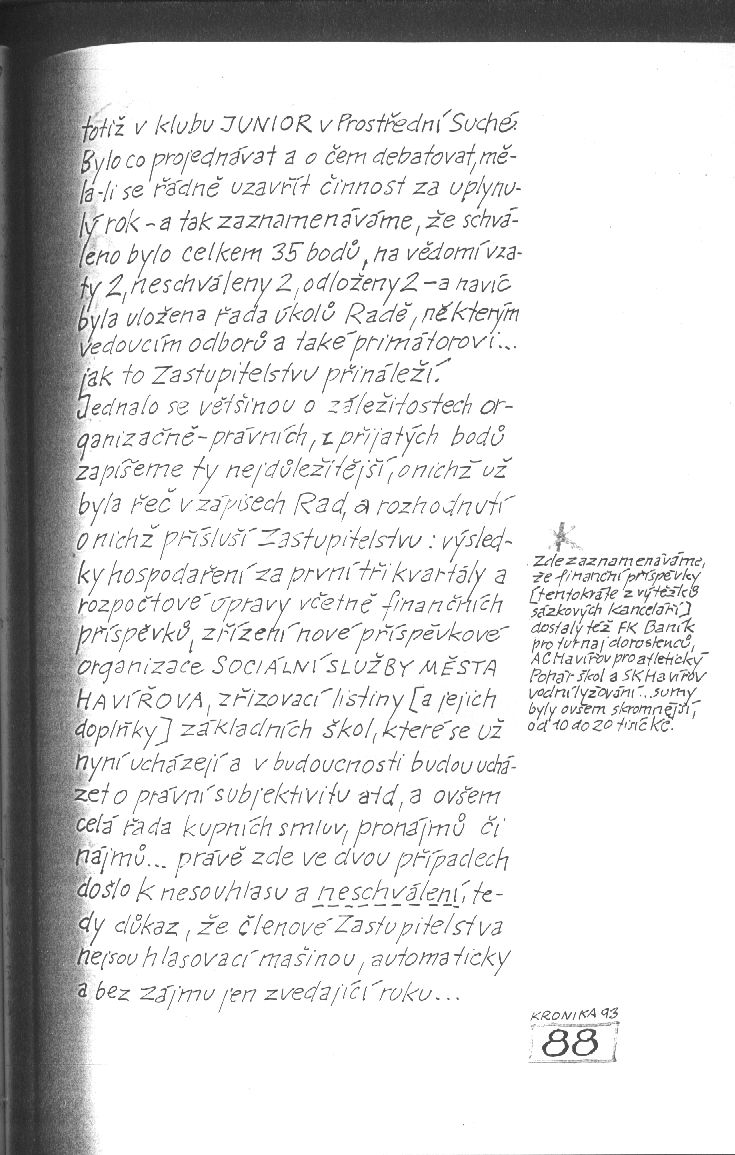 totiž v klubu JUNIOR v Prostřední Suché.
Bylo co projednávat a o čem debatovat, mě-
la-li se řádně uzavřít činnost za uplynu-
lý rok - a tak zaznamenáváme, že schvá-
leno bylo celkem 35 bodů, na vědomí vza-
ty 2, neschváleny 2, odloženy 2 - a navíc
byla uložena řada úkolů Radě, některým
vedoucím odborů a také primátorovi...
jak to Zastupitelstvu přináleží.
Jednalo se většinou o záležitostech or-
ganizačně-právních, z přijatých bodů
zapíšeme ty nejdůležitější, o nichž už
byla řeč v zápisech Rad, a rozhodnutí
o nichž přísluší Zastupitelstvu: výsled-
ky hospodaření za první tři kvartály a
rozpočtové úpravy včetně finančních
příspěvků, zřízení nové příspěvkové
organizace SOCIÁLNÍ SLUŽBY MĚSTA
HAVÍŘOVA, zřizovací listiny [a jejich
doplňky] základních škol, které se už
nyní ucházejí a v budoucnosti budou uchá-
zet o právní subjektivitu atd, a ovšem
celá řada kupních smluv, pronájmů či
nájmů... právě zde ve dvou případech
došlo k nesouhlasu a neschválení, te-
dy důkaz, že členové Zastupitelstva
nejsou hlasovací mašinou, automaticky
a bez zájmu jen zvedající ruku...
Zde zaznamenáváme,
že finanční příspěvky
[tentokráte z výtěžků
sázkových kanceláří]
dostaly též FK Baník
pro turnaj dorostenců,
AC Havířov pro atletický
Pohár škol a SK Havířov
vodní lyžování... sumy
byly ovšem skromnější,
od 10 do 20 tisíc Kč.
KRONIKA 93
88